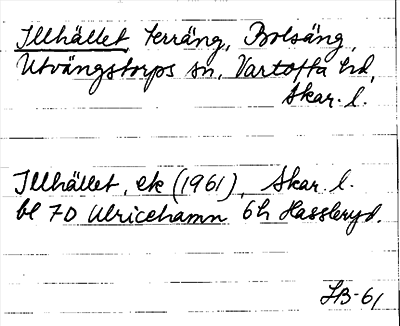 Illhället, terräng, Bolsäng,
Utvängstorps sn, Vartofta hd,
Skar. l.
Illhället, ek (1961), Skar. l.
bl 7D Ulricehamn 6h Hassleryd.
IB-61